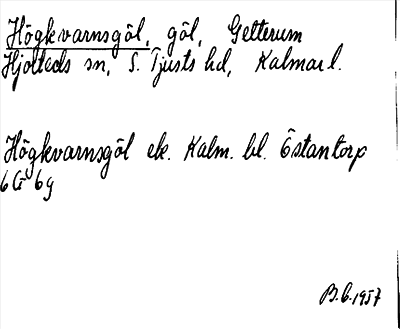 Högkvarnsgöl, göl, Gelterum
Hjorteds sn, S. Tjusts hd, Kalmar l.
Högkvarnsgöl ek. Kalm. bl. Östantorp
6G 6g
B.G. 1957